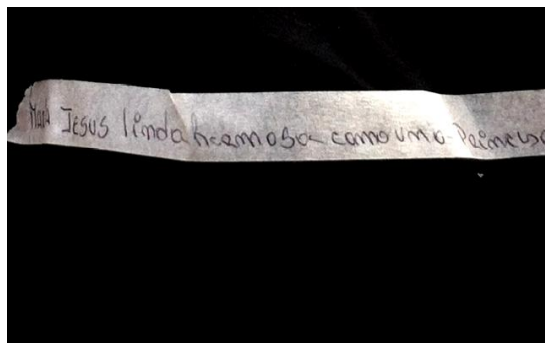 Mari Jesus linda hermosa como una Princesa